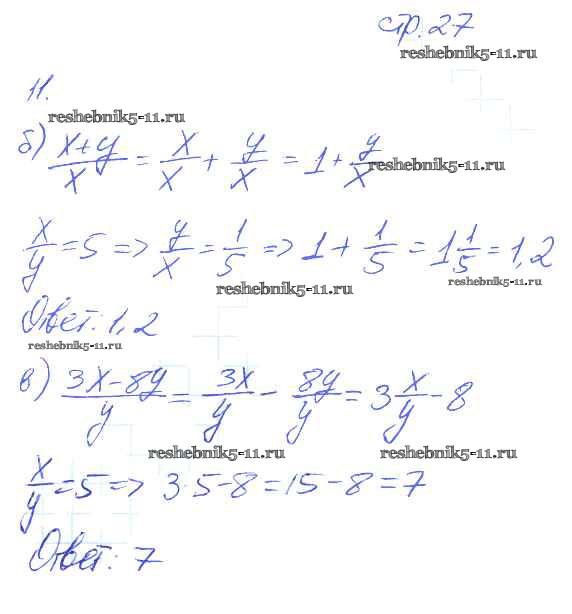 стр. 27
reshebnik5-11.ru
11.
reshebnik5-11.ru
б) (x+y)/x = x/x + y/x = 1 + y/x
reshebnik5-11.ru
x/y = 5 => y/x = 1/5 => 1 + 1/5 = 1 1/5 = 1,2
reshebnik5-11.ru
reshebnik5-11.ru
Ответ: 1,2
reshebnik5-11.ru
в) (3x-8y)/y = 3x/y - 8y/y = 3 x/y - 8
reshebnik5-11.ru
reshebnik5-11.ru
x/y = 5 => 3·5-8=15-8=7
Ответ: 7